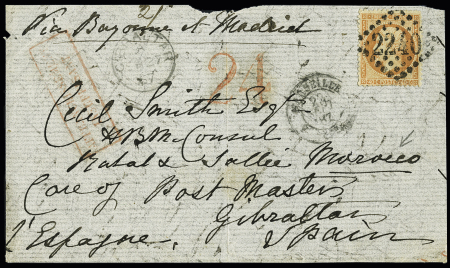 Via Bayonne et Madrid
2240
24
MARSEILLE
Cecil Smith Esq
H.B.M. Consul
Rabat & Sallie Morocco
Care of Post Master
Gibraltar
l'Espagne. Spain